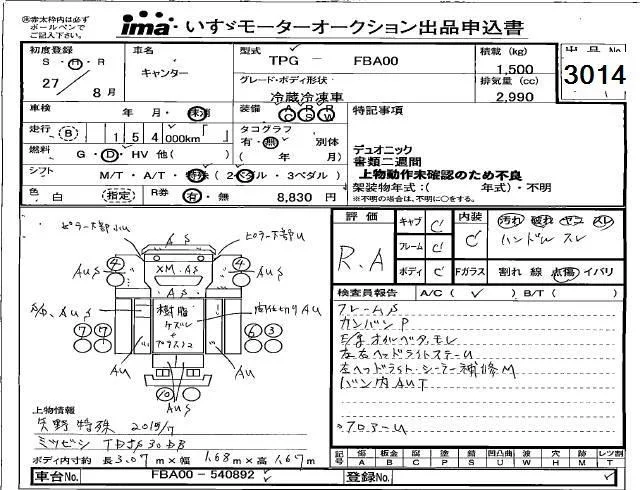 ㊟赤太枠内は必ず
ボールペンで
ご記入下さい。
ima いすゞモーターオークション出品申込書
初度登録
S・H・R
27
8月
車名
キャンター
型式
TPG － FBA00
グレード・ボディ形状
冷蔵冷凍車
積載 (kg)
1,500
排気量 (cc)
2,990
出品No
3014
車検
年 月・抹消
装備
AC PS PW
特記事項
走行
B 154,000km
タコグラフ
有・無 別体
( 年 月)
デュオニック
書類二週間
上物動作未確認のため不良
架装物年式:( 年式)・不明
※不明の場合は、不明に○をする。
燃料
G・D・HV 他( )
シフト
M/T・A/T・特殊(2ペダル・3ペダル)
色
白 (指定)
R券
有・無 8,830 円
評価
R.A
キャブ C
フレーム C
ボディ C
内装
C
Fガラス
汚れ 破れ ヤニ スレ
ハンドル スレ
割れ 線 点傷 イバリ
検査員報告 A/C( ✓ ) B/T( )
フレームS
カンバンP
E/gオイルベタ,モレ
左右ヘッドライトステーU
左ヘッドライト・シーラー補修M
バン内AUT
フロアーU
ピラー下部U
AS
XM.AS
AS
樹脂
AUS
AU
④
⑦⑦
⑥③
⑩
上物情報
矢野特殊 2015/7
ミツビシ
ボディ内寸約 長3.07m×幅1.68m×高1.67m
車台No. FBA00－540892
記号
傷 A
板金 B
腐 C
塗 P
錆 S
凹凸曲 U
波 W
穴 H
跡 M
レツ割 T
登録No.